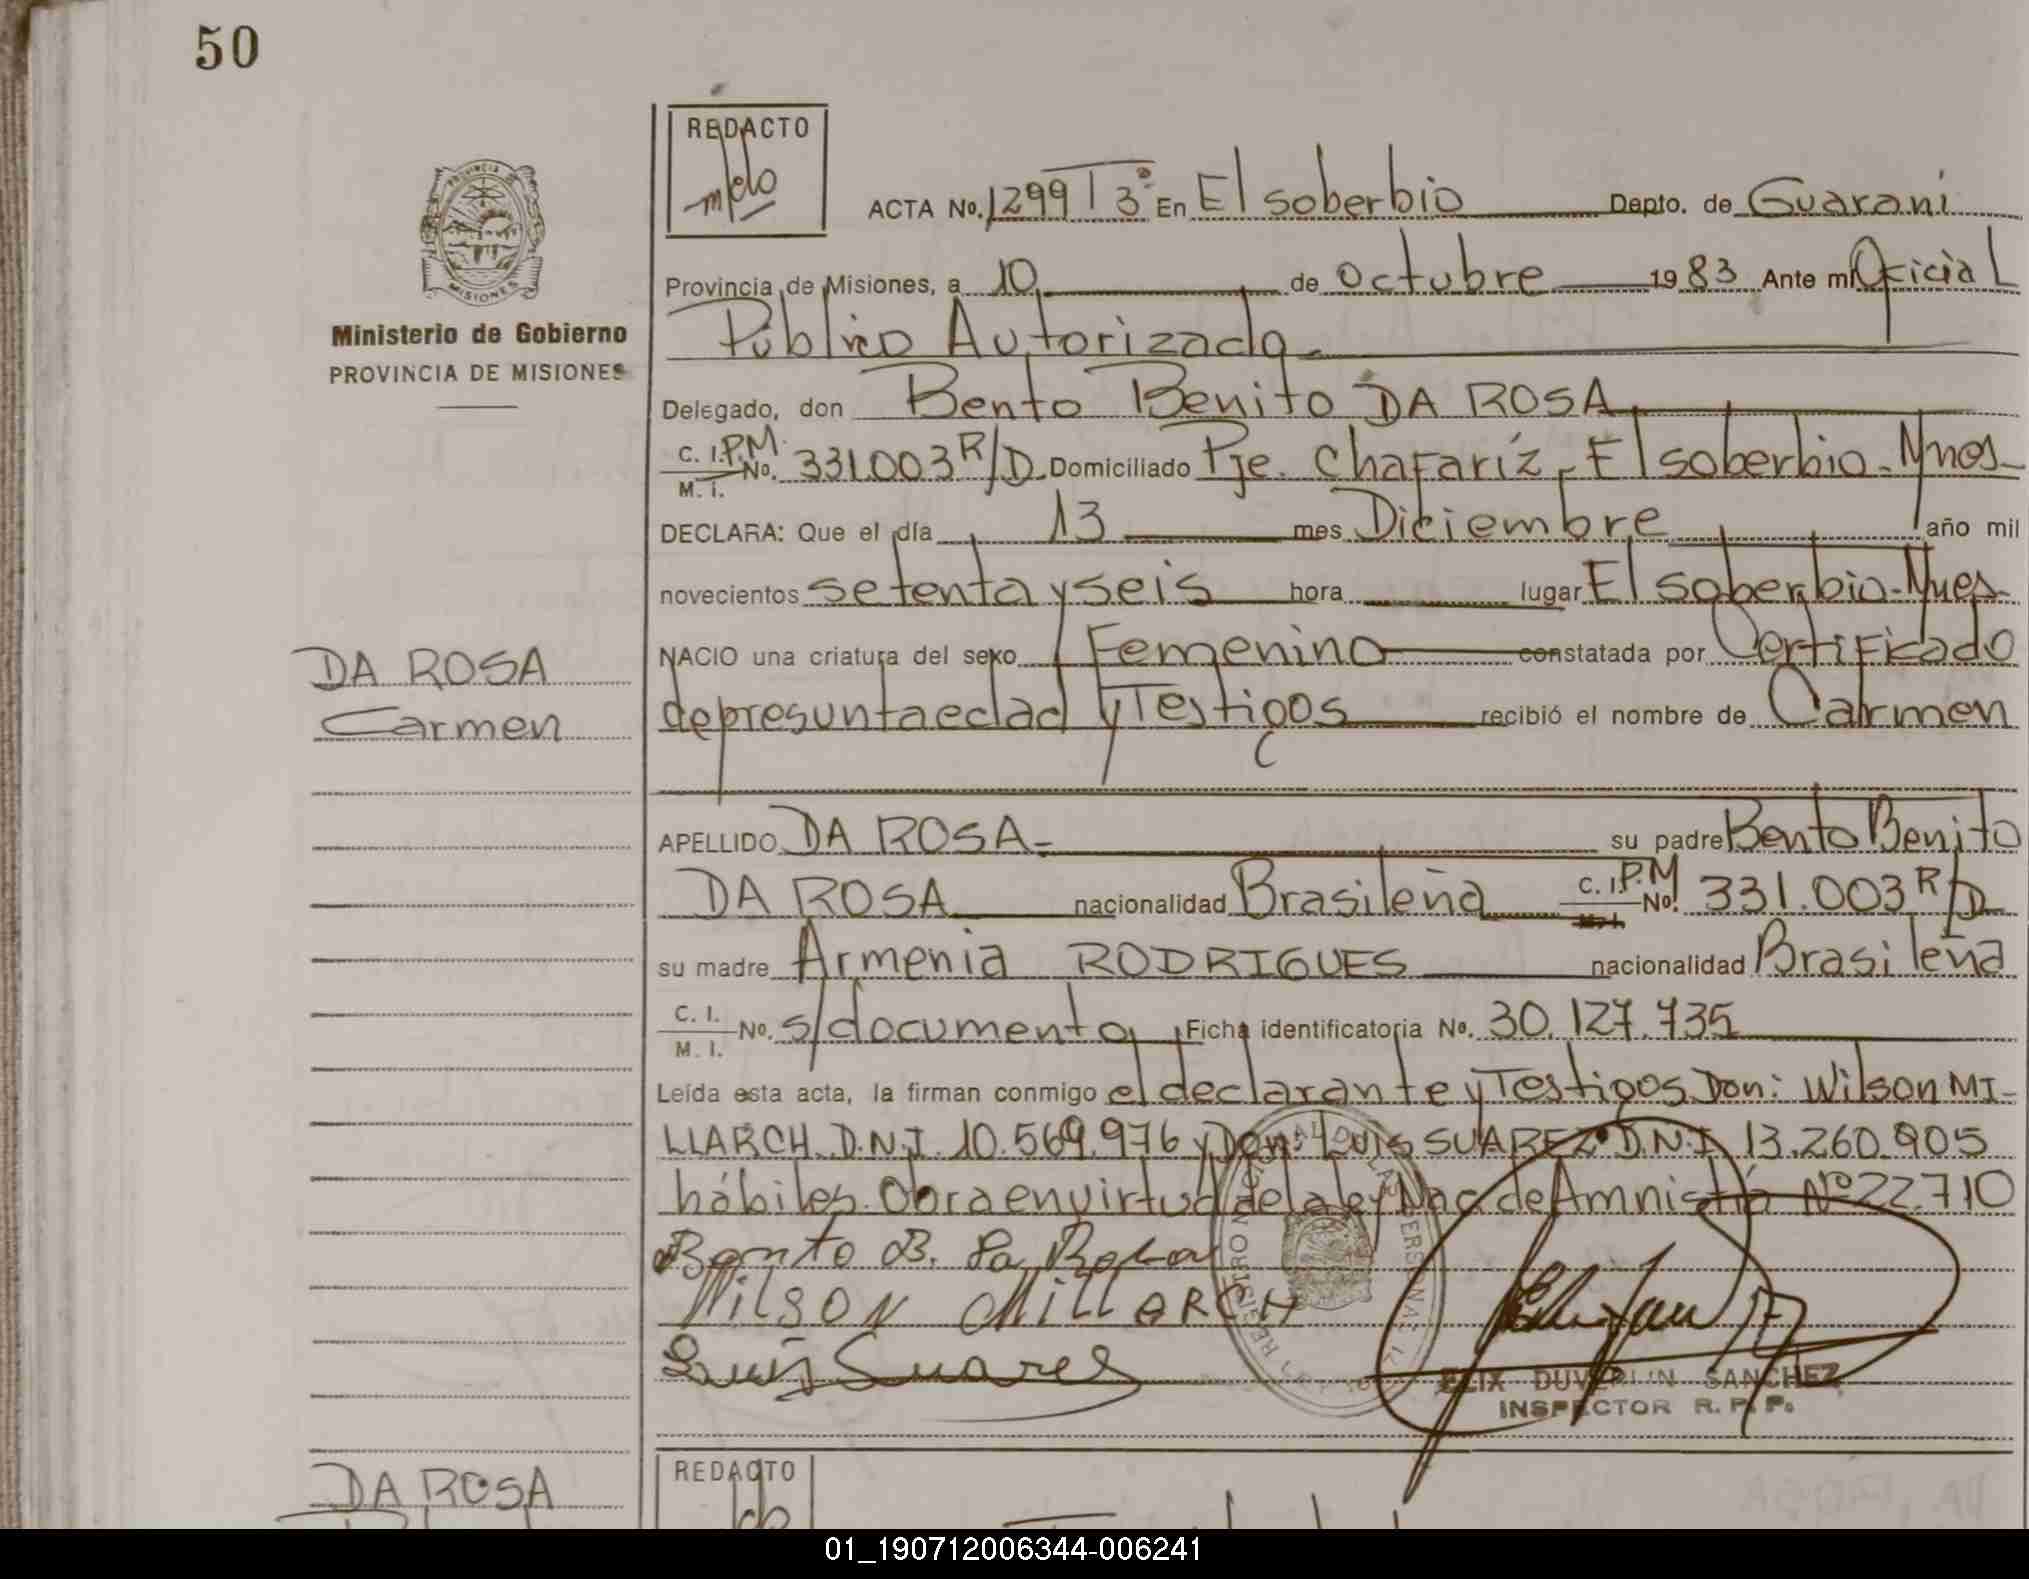 50
REDACTO
ACTA No. 1299 T 3° En El soberbio Depto. de Guaraní
Provincia de Misiones, a 10 de octubre 1983 Ante mi Oficial
Público Autorizado
Ministerio de Gobierno
PROVINCIA DE MISIONES
Delegado, don Bento Benito DA ROSA
C. I.P.M. No. 331.003 R/D. Domiciliado Pje. Chafaríz - El soberbio - Mnes-
M. I.
DECLARA: Que el día 13 mes Diciembre año mil
novecientos setenta y seis hora lugar El soberbio - Mnes-
DA ROSA
NACIO una criatura del sexo Femenino constatada por Certificado
Carmen
de presunta edad y Testigos recibió el nombre de Carmen
APELLIDO DA ROSA- su padre Bento Benito
DA ROSA nacionalidad Brasileña C. I.P.M No. 331.003 R/D
su madre Armenia RODRIGUES nacionalidad Brasileña
C. I. No. s/documento Ficha identificatoria No. 30.127.735
M. I.
Leída esta acta, la firman conmigo el declarante y Testigos Don: Wilson MI-
LLARCH D.N.I. 10.569.976 y Don: LUIS SUAREZ D.N.I 13.260.905
hábiles. Obra en virtud de la ley Nac. de Amnistía Nº 22.710
Bento B. Da Rosa
Wilson Millarch
Luis Suares
ELIX DUVERLIN SANCHEZ
INSPECTOR R. P. P.
DA ROSA
REDACTO
01_190712006344-006241